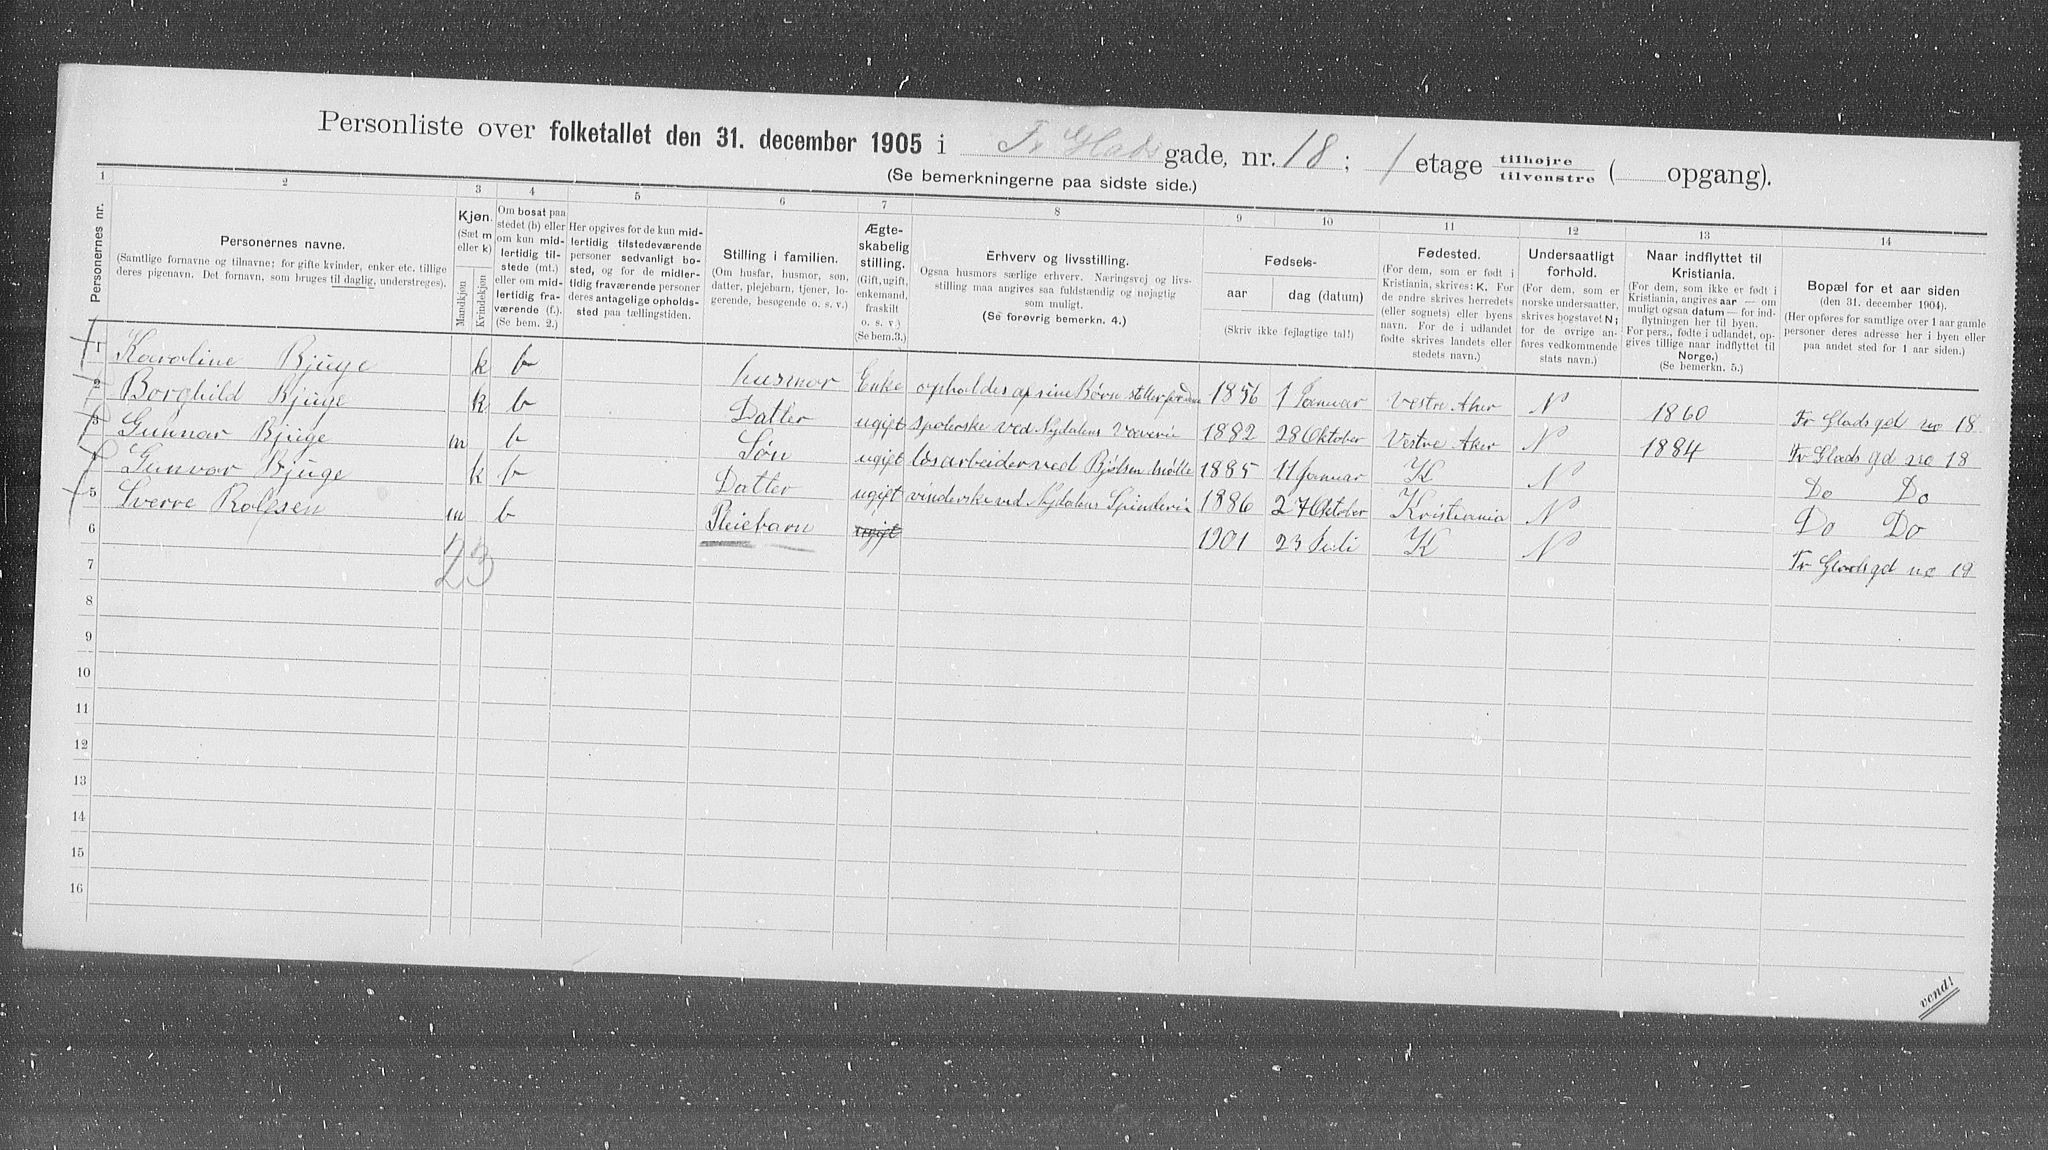 Personliste over folketallet den 31. december 1905 i Fr Glads gade, nr. 18 ; 1 etage tilhøjre tilvenstre ( opgang).
(Se bemerkningerne paa sidste side.)
1 2 3 4 5 6 7 8 9 10 11 12 13 14
Personernes nr.
Personernes navne.
(Samtlige fornavne og tilnavne; for gifte kvinder, enker etc. tillige deres pigenavn. Det fornavn, som bruges til daglig, understreges).
Kjøn.
(Sæt m eller k)
Mandkjøn
Kvindekjøn
Om bosat paa stedet (b) eller om kun midlertidig tilstede (mt.) eller om midlertidig fraværende (f.). (Se bem. 2.)
Her opgives for de kun midlertidig tilstedeværende personer sedvanligt bosted, og for de midlertidig fraværende personer deres antagelige opholdssted paa tællingstiden.
Stilling i familien.
(Om husfar, husmor, søn, datter, plejebarn, tjener, logerende, besøgende o. s. v.)
Ægteskabelig stilling.
(Gift, ugift, enkemand, fraskilt o. s. v.)
(Se bem.3.)
Erhverv og livsstilling.
Ogsaa husmors særlige erhverv. Næringsvej og livsstilling maa angives saa fuldstændig og nøjagtig som muligt.
(Se forøvrig bemerkn. 4.)
Fødsels-
aar
dag (datum)
(Skriv ikke fejlagtige tal!)
Fødested.
(For dem, som er født i Kristiania, skrives: K. For de øvrige skrives herredets (eller sognets) eller byens navn. For de i udlandet fødte skrives landets eller stedets navn.)
Undersaatligt forhold.
(For dem, som er norske undersaatter, skrives bogstavet N; for de øvrige anføres vedkommende stats navn.)
Naar indflyttet til Kristiania.
(For dem, som ikke er født i Kristiania, angives aar — om muligt ogsaa datum — for indflytningen her til byen. For pers., fødte i udlandet, opgives tillige naar indflyttet til Norge.)
(Se bemerkn. 5.)
Bopæl for et aar siden
(den 31. december 1904).
(Her opføres for samtlige over 1 aar gamle personer deres adresse her i byen eller paa andet sted for 1 aar siden.)
1 Karoline Bjuge k b husmor Enke opholdes af sine Børn 1856 1 Januar Vestre Aker N 1860 Fr Glads gd no 18
2 Borghild Bjuge k b Datter ugift Spolerske ved Nydalens Væveri 1882 28 Oktober Vestre Aker N 1884 Fr Glads gd no 18
3 Gunnar Bjuge m b Søn ugift løsarbeider ved Bjølsen Mølle 1885 11 Januar K N Do Do
4 Gunvor Bjuge k b Datter ugift vinderske ved Nydalens Spinderi 1886 27 Oktober Kristiania N Do Do
5 Sverre Rolfsen m b Pleiebarn ugift 1901 23 Juli K N Fr Glads gd no 18
6
23
7
8
9
10
11
12
13
14
15
16
vend!